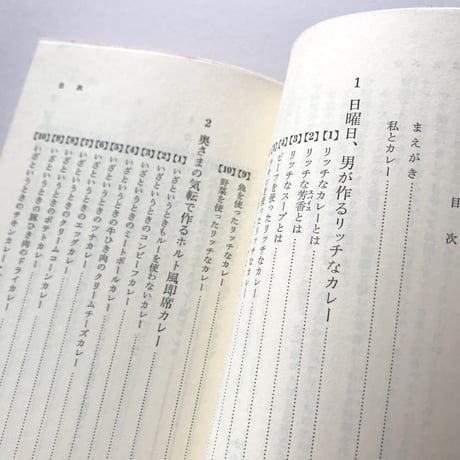 目次
まえがき
私とカレー
1 日曜日、男が作るリッチなカレー
【1】リッチなカレーとは
【2】リッチな芳香とは
スパイス
【3】リッチなスープとは
【4】ビーフを使ったリッチなカレー
使ったリッチなカレー
【9】魚を使ったリッチなカレー
【10】野菜を使ったリッチなカレー
2 奥さまの気転で作るホルト風即席カレー
【1】いざというときもルーを使わないカレー
【2】いざというときのコンビーフカレー
【3】いざというときのミートボールカレー
【4】いざというときの牛ひき肉のクリームチーズカレー
【5】いざというときのツナカレー
【6】いざというときのエッグカレー
【7】いざというときのクリームコーンカレー
【8】いざというときのポテトカレー
【9】いざというときの豚ひき肉のドライカレー
【10】いざというときのチキンカレー
目次